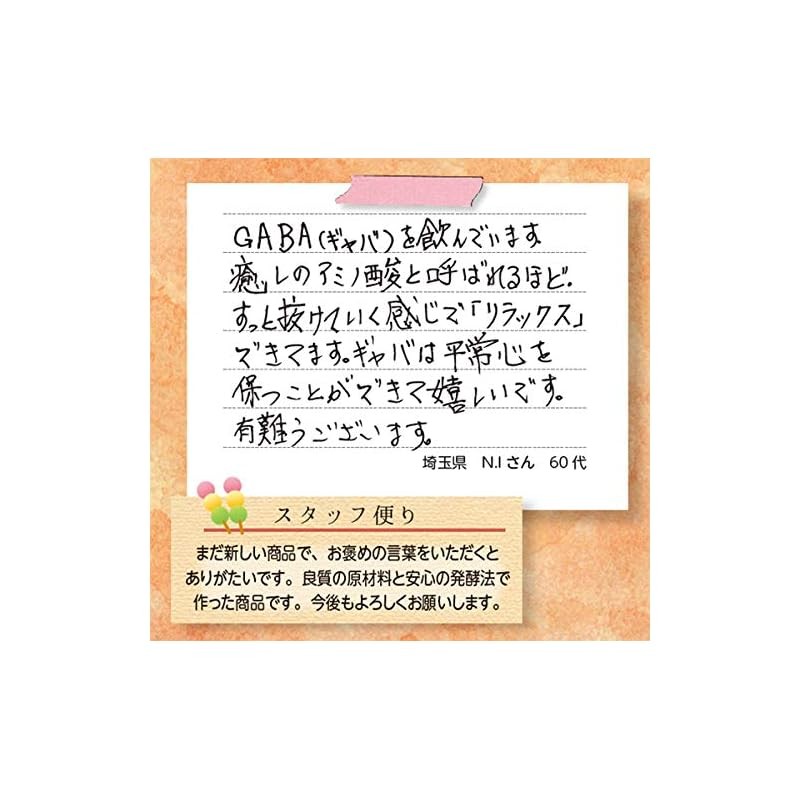 GABA(ギャバ)を飲んでいます
癒しのアミノ酸と呼ばれるほど、
すっと抜けていく感じで「リラックス」
できてます。ギャバは平常心を
保つことができて嬉しいです。
有難うございます。
埼玉県 N.Iさん 60代
スタッフ便り
まだ新しい商品で、お褒めの言葉をいただくと
ありがたいです。良質の原材料と安心の発酵法で
作った商品です。今後もよろしくお願いします。